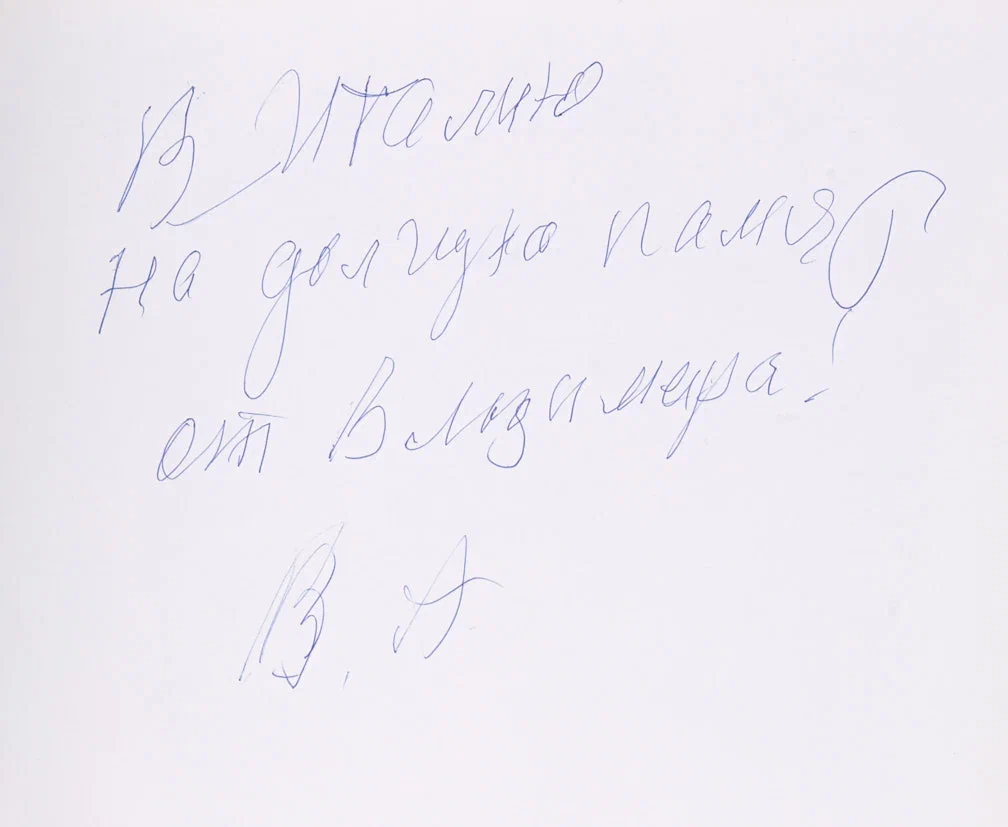 Виталию
на долгую память
от Владимира!
В. А.